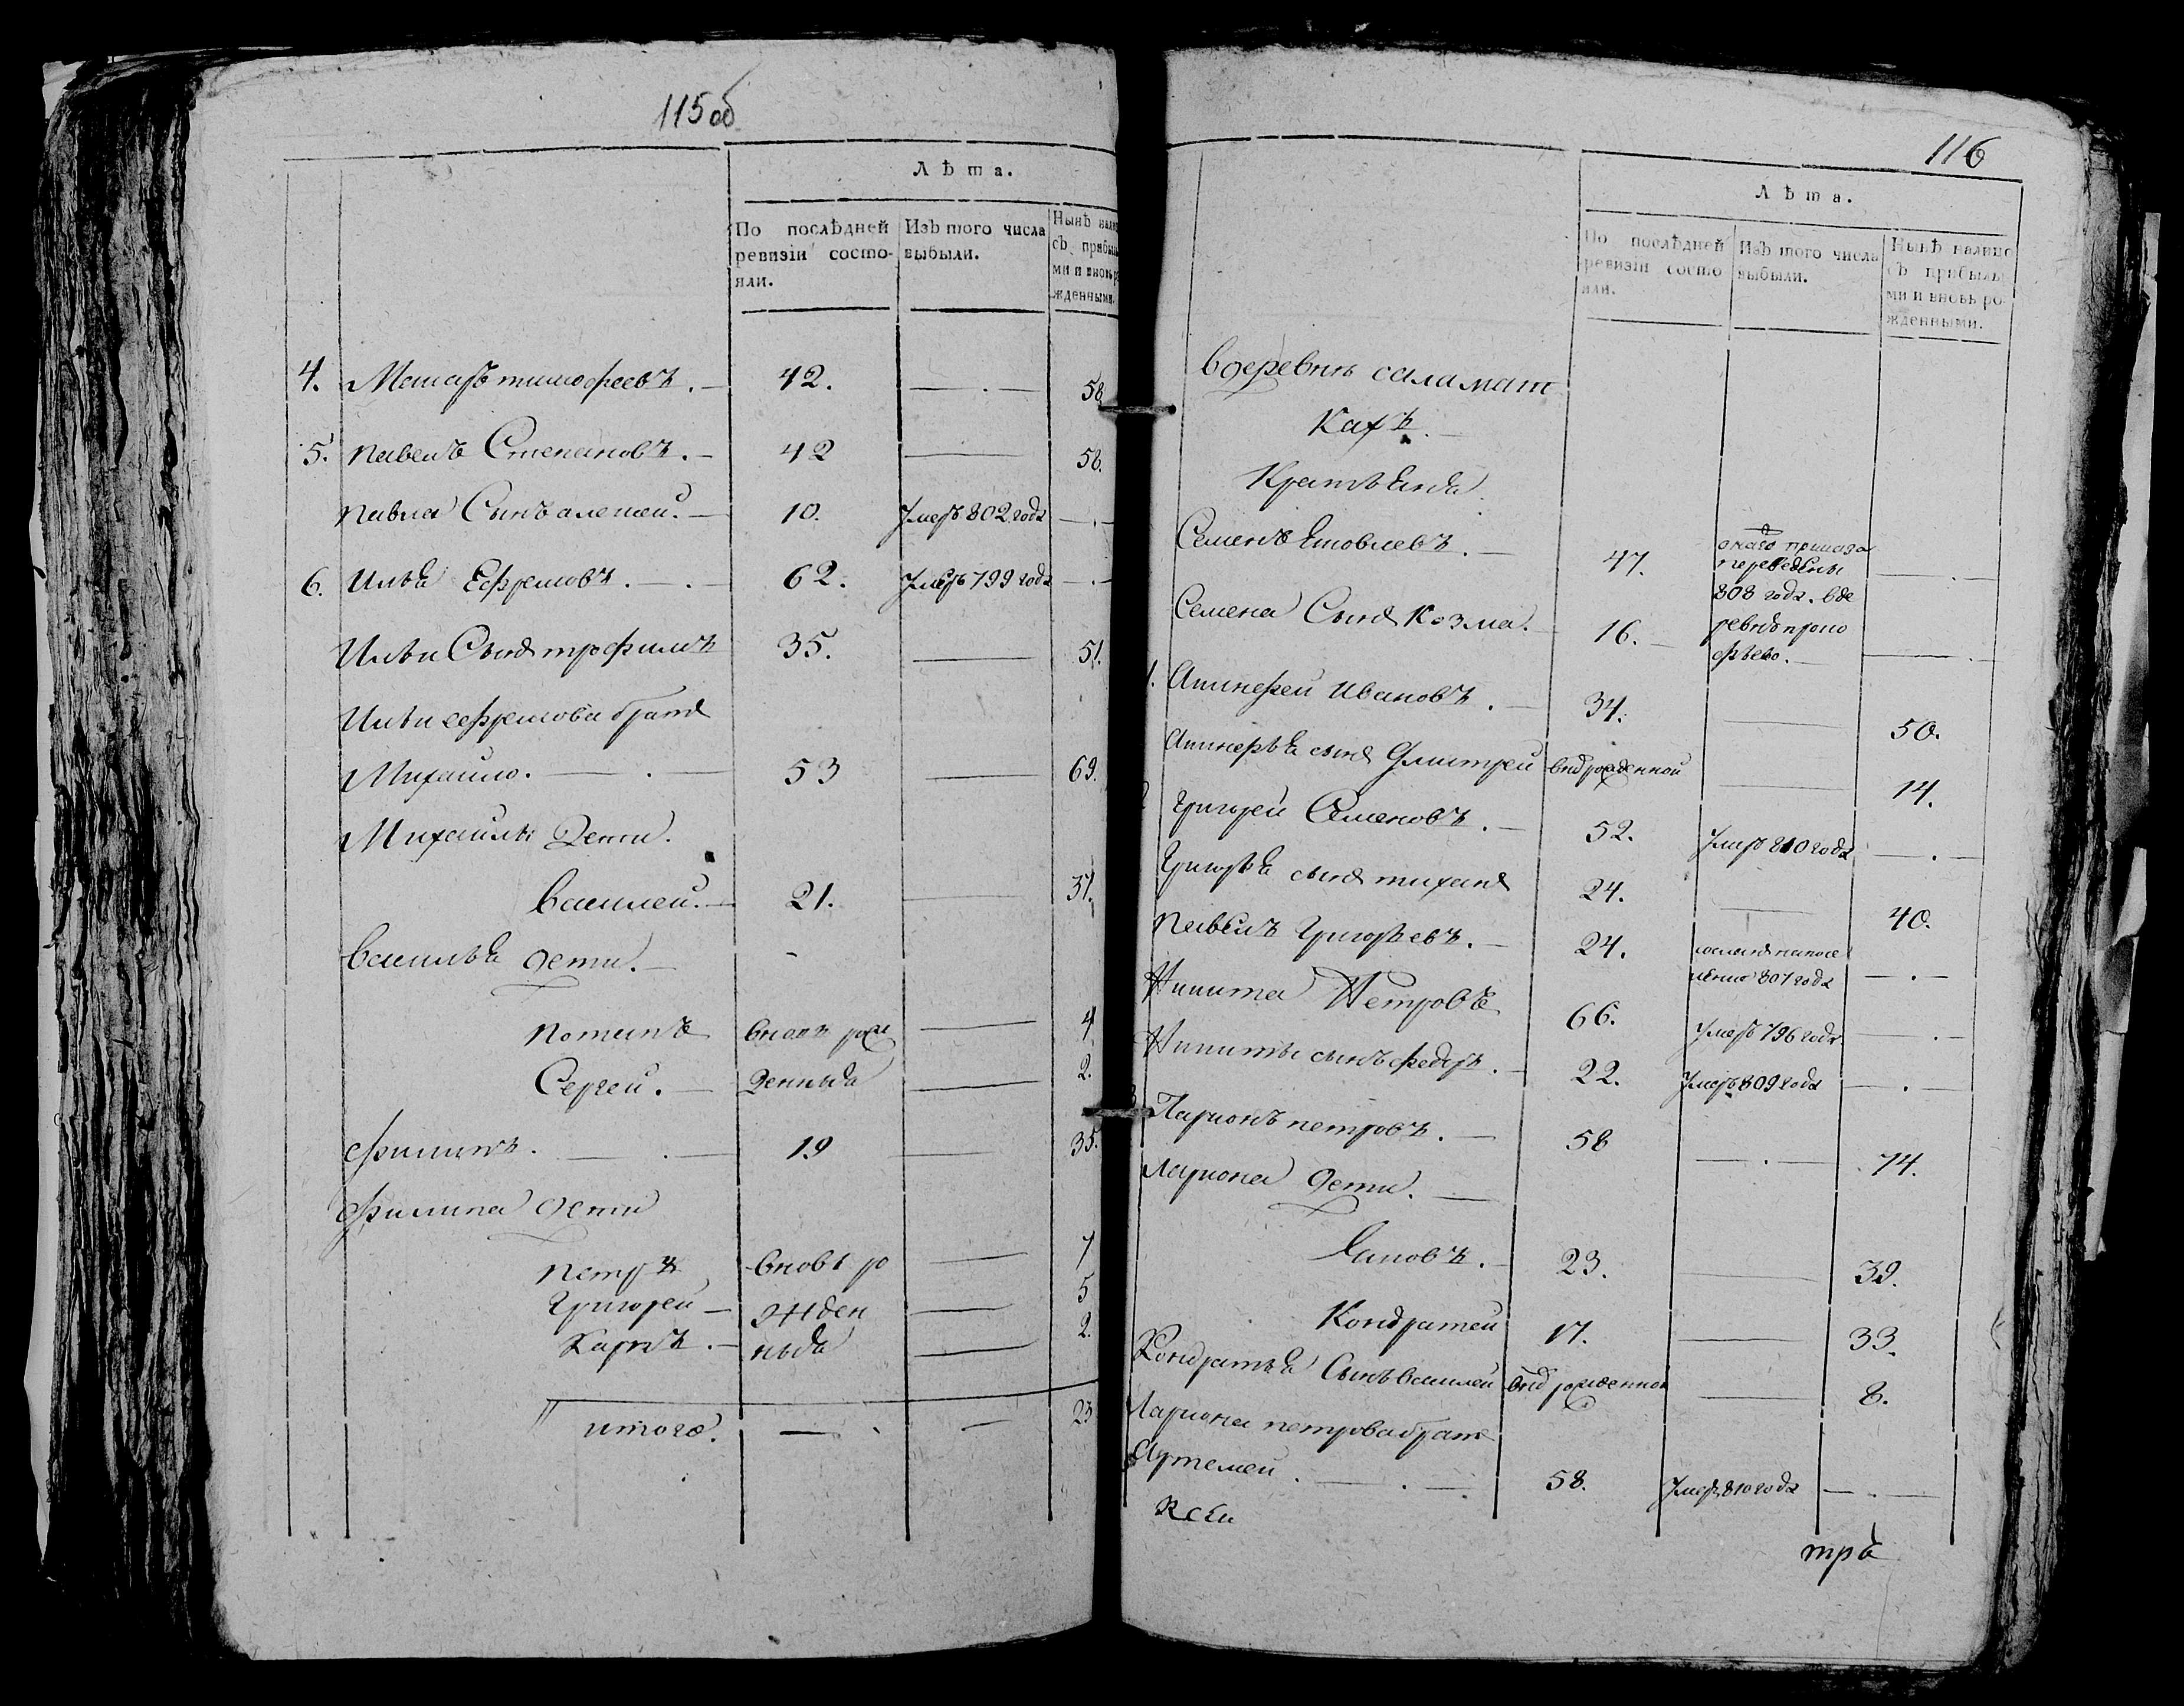 115об
Лѣта.
По послѣдней ревизіи состояли.
Изъ того числа выбыли.
Нынѣ налиц съ прибылы ми и вновь ро жденными.
4. Макаръ тимофеевъ. 42. — 58
5. павелъ Степановъ. 42 — 58.
павла Сынъ алексей. 10. умеръ 802 года —
6. Илья Ефремовъ. 62. умеръ 799 года —
Ильи Сынъ трофимъ 35. — 51.
Ильи ефремова братъ
Михайло. 53 — 69.
Михайлы Дети.
василей. 21. — 37.
василья дети.
потапъ вновь рож — 4
Сергей. денныя — 2.
филипъ. 19 — 35.
филипа дети
петръ вновь ро — 7
Григорей жден — 5
Карпъ. ныя — 2.
итого. — — 23
116
Лѣта.
По послѣдней ревизіи состо яли.
Изъ того числа выбыли.
Нынѣ налицо съ прибылы ми и вновь ро жденными.
вдеревне саламат
кахъ.
Крестьяня
Семенъ Яковлевъ. 47. онаго приказа —
переведены
808 года. вде
Семена Сынъ Козма. 16. ревню —
1. Аникеей Ивановъ. 34. — 50.
Аникея сынъ Дмитрей внѣ рожденной — 14.
Григорей Семеновъ. 52. умеръ 810 года —
Григорья сынъ тиханъ 24. — 40.
павелъ Григорьевъ. 24. сосланъ напосе
ление 807 года —
Никита Петровъ 66. умеръ 796 года —
Никиты сынъ федоръ. 22. умеръ 809 года —
3 Ларионъ петровъ. 58 — 74.
Лариона дети.
Яковъ. 23. — 39.
Кондратей 17. — 33.
Кондратья Сынъ василей внѣ рожденной — 8.
Лариона петрова братъ
Артемей. 58. умеръ 810 года —
ксеи
тре